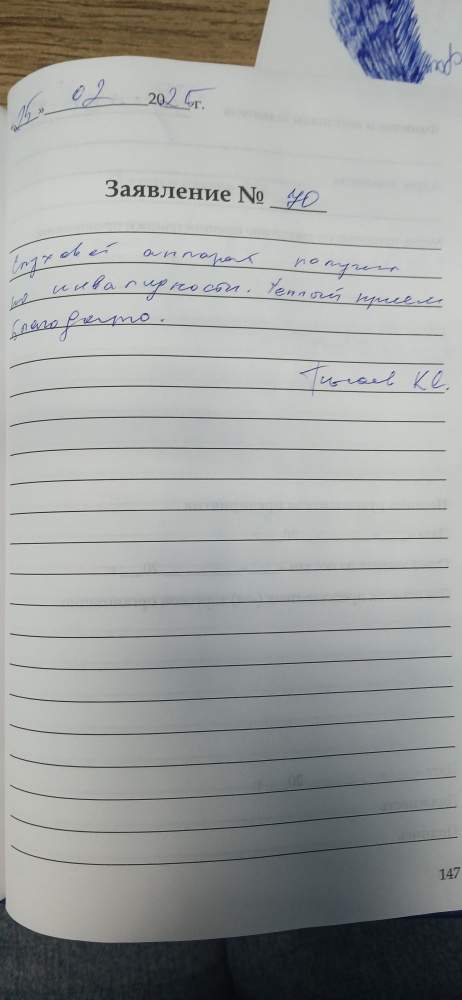 "25" 02 2025 г.
Заявление № 70
Слуховой аппарат получил
по инвалидности. Теплый прием
благодарю.
К.
147